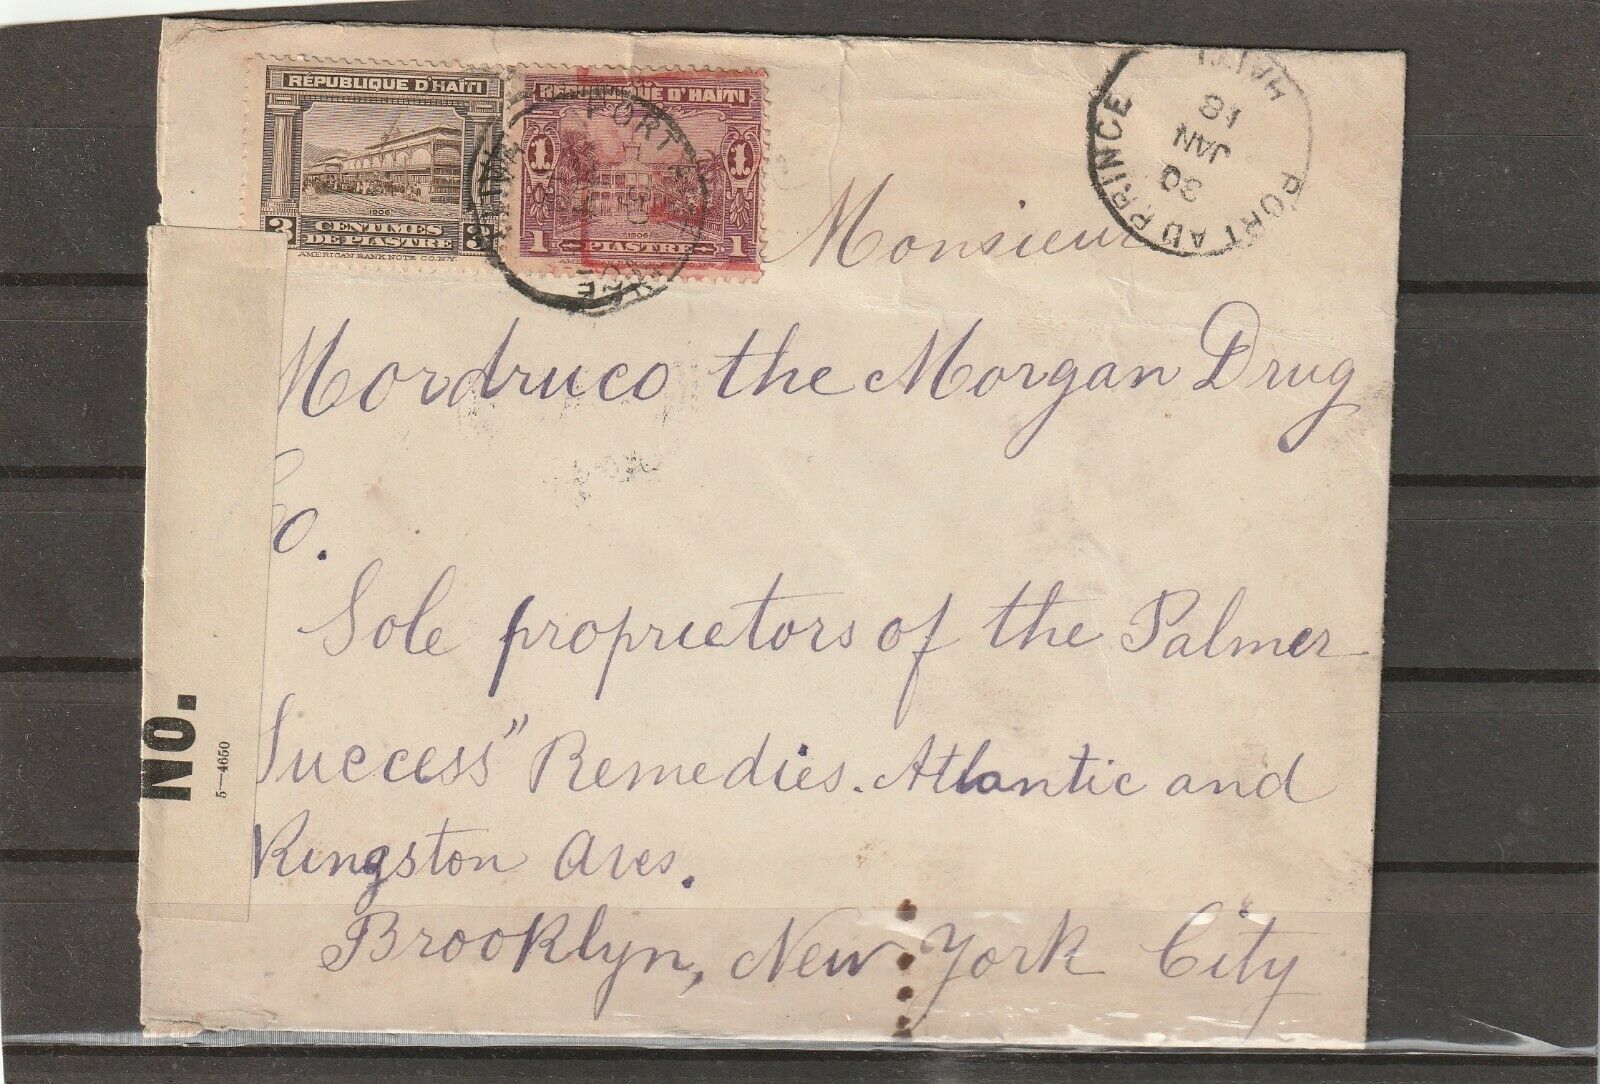 RÉPUBLIQUE D'HAÏTI
1906
3 CENTIMES 3
DE PIASTRE
AMERICAN BANK NOTE CO. N.Y.
RÉPUBLIQUE D'HAÏTI
1 1
1906
1 PIASTRE 1
PORT
HAITI
PORT AU PRINCE
HAITI
30
JAN
18
Monsieur
Mordruco the Morgan Drug
Co.
Sole proprietors of the Palmer
Success" Remedies. Atlantic and
Kingston Aves.
Brooklyn, New York City
NO.
5—4650